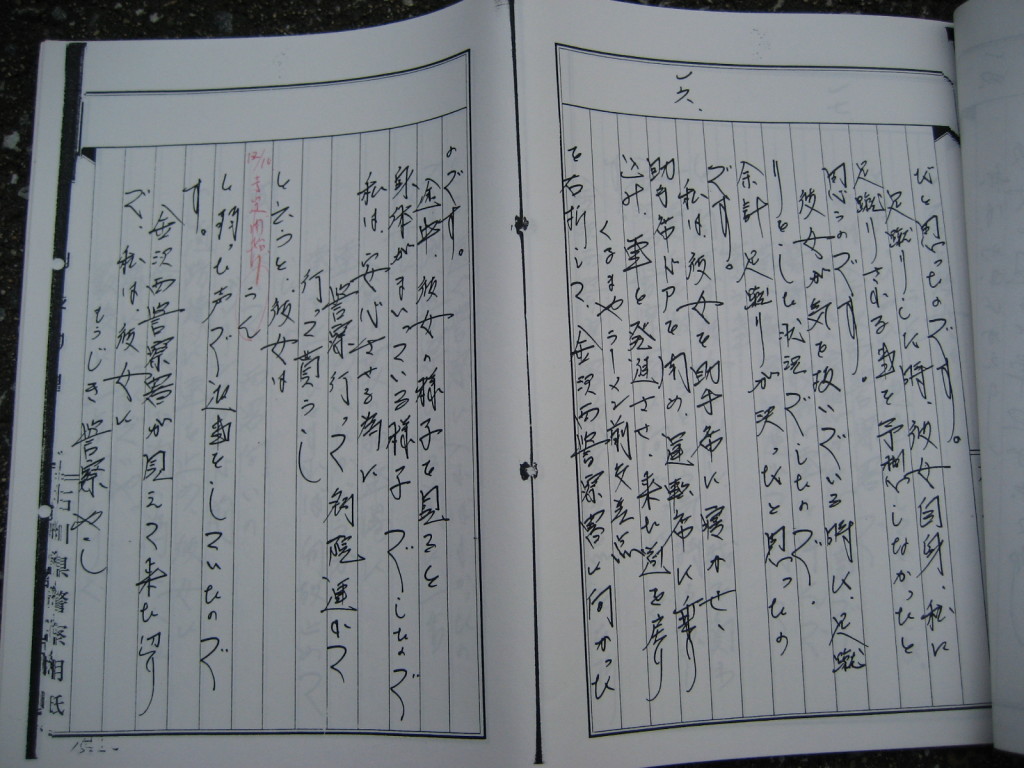 一六、
びと思ったのです。
足蹴りした時、彼女自身、私に
足蹴りされる事を予想しなかったと
思うのです。
彼女が気を抜いでいる時に、足蹴
りをした状況でしたので、
余計足蹴りが決ったと思ったの
です。
私は、彼女を助手席に寝かせ、
助手席ドアを閉め、運転席に乗り
込み、車を発進させ、来た道を戻り
くるまやラーメン前交差点
を右折して、金沢西警察署に向かった
のです。
途中、彼女の様子を見ると
身体がまいっている様子でしたので
私は、安心させる為に
警察行って病院運んで
行って貰うし
と言うと、彼女は
うん
と弱った声で返事をしていたので
す。
金沢西警察署が見えて来た辺り
で、私は、彼女に
もうじき警察やし
石川県警察